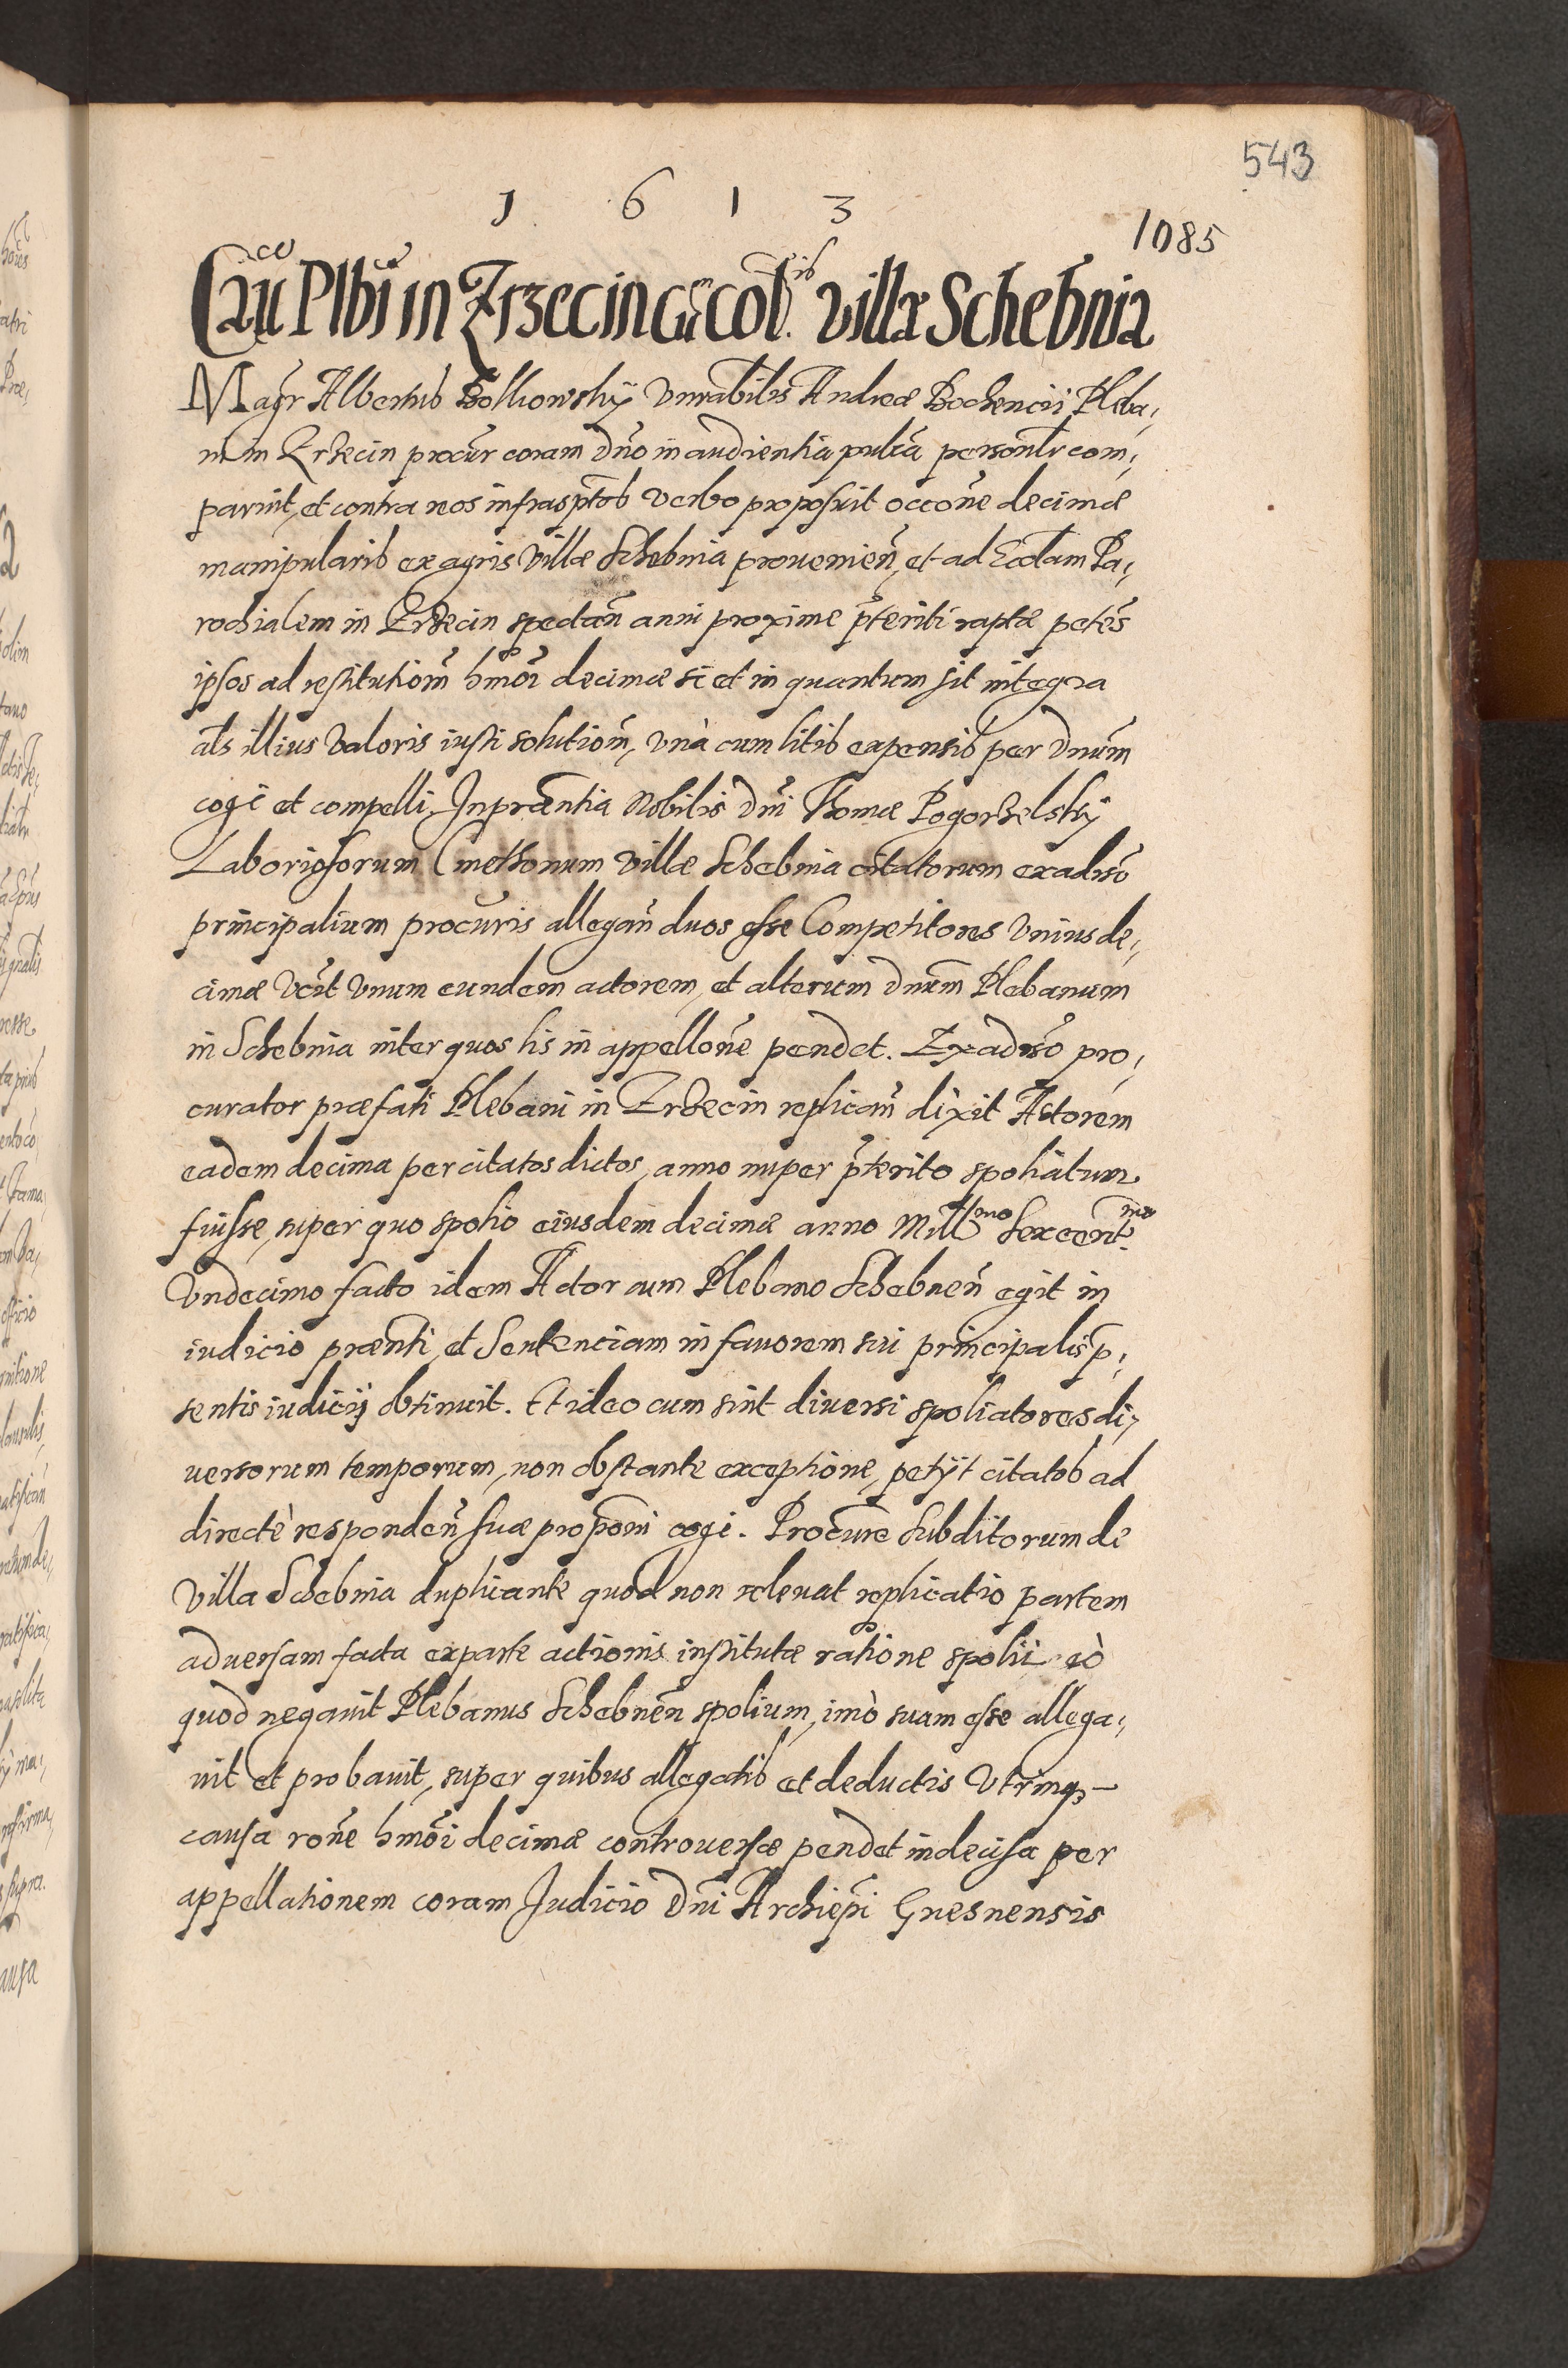 543
1 6 1 3
1085
Cāū Plbī in Zrzecin cū cōl. villæ Schebnia
Magr Albertus Bolkowsky Vnrabilis Andreæ Bochencii Pleba,
ni in Zrzecin procūr coram dn̄o in audientia publca persontr com,
paruit, et contra eos infrasptos verbo proposuit occōne decimæ
manipularis ex agris villæ Schebnia prouenien̄, et ad Eccl̄am Pa,
rochialem in Zrzecin spectan̄ anni proxime p̄teriti raptæ petēs
ipsos ad restitutiōm hmōi decimæ si et in quantum sit integra
als illius valoris iusti solutiōm, vnà cum litis expensis per Dnūm
cogi et compelli. In præntia Nobilis Dni Thomæ Pogorzelsky
Laboriosorum Cmethonum villæ Schebnia citatorum exadūso
principalium procuris allegan̄ duos esse Competitores vnius de,
cimæ vczt vnum eundem actorem, et alterum dnūm Plebanum
in Schebnia inter quos lis in appellōne pendet. Ex aduso pro,
curator præfati Plebani in Zrzecin replican̄ dixit Actorem
eadem decima per citatos dictos, anno nuper p̄terito spoliatum
fuisse, super quo spolio eiusdem decimæ anno Mill̄mo Sexcent.mo
Vndecimo facto idem Actor cum Plebano Schebnen̄ egit in
iudicio prænti, et Sentenciam in fauorem sui principalis p̄,
sentis iudicij obtinuit. Et ideo cum sint diuersi spoliatores di,
uersorum temporum, non obstante exceptione, petijt citatos ad
directè responden̄ suæ propōni cogi. Procūre Subditorum de
villa Schebnia duplicante quod non releuat replicatio partem
aduersam facta ex parte actionis institutæ ratione spolii eò
quod negauit Plebanus Schebnen̄ spolium, imò suam esse allega,
uit et probauit, super quibus allegatis et deductis vtrinq₃
causa rōne hmōi decimæ controuersæ pendet indecisa per
appellationem coram Judicio Dni Archiepi Gnesnensis